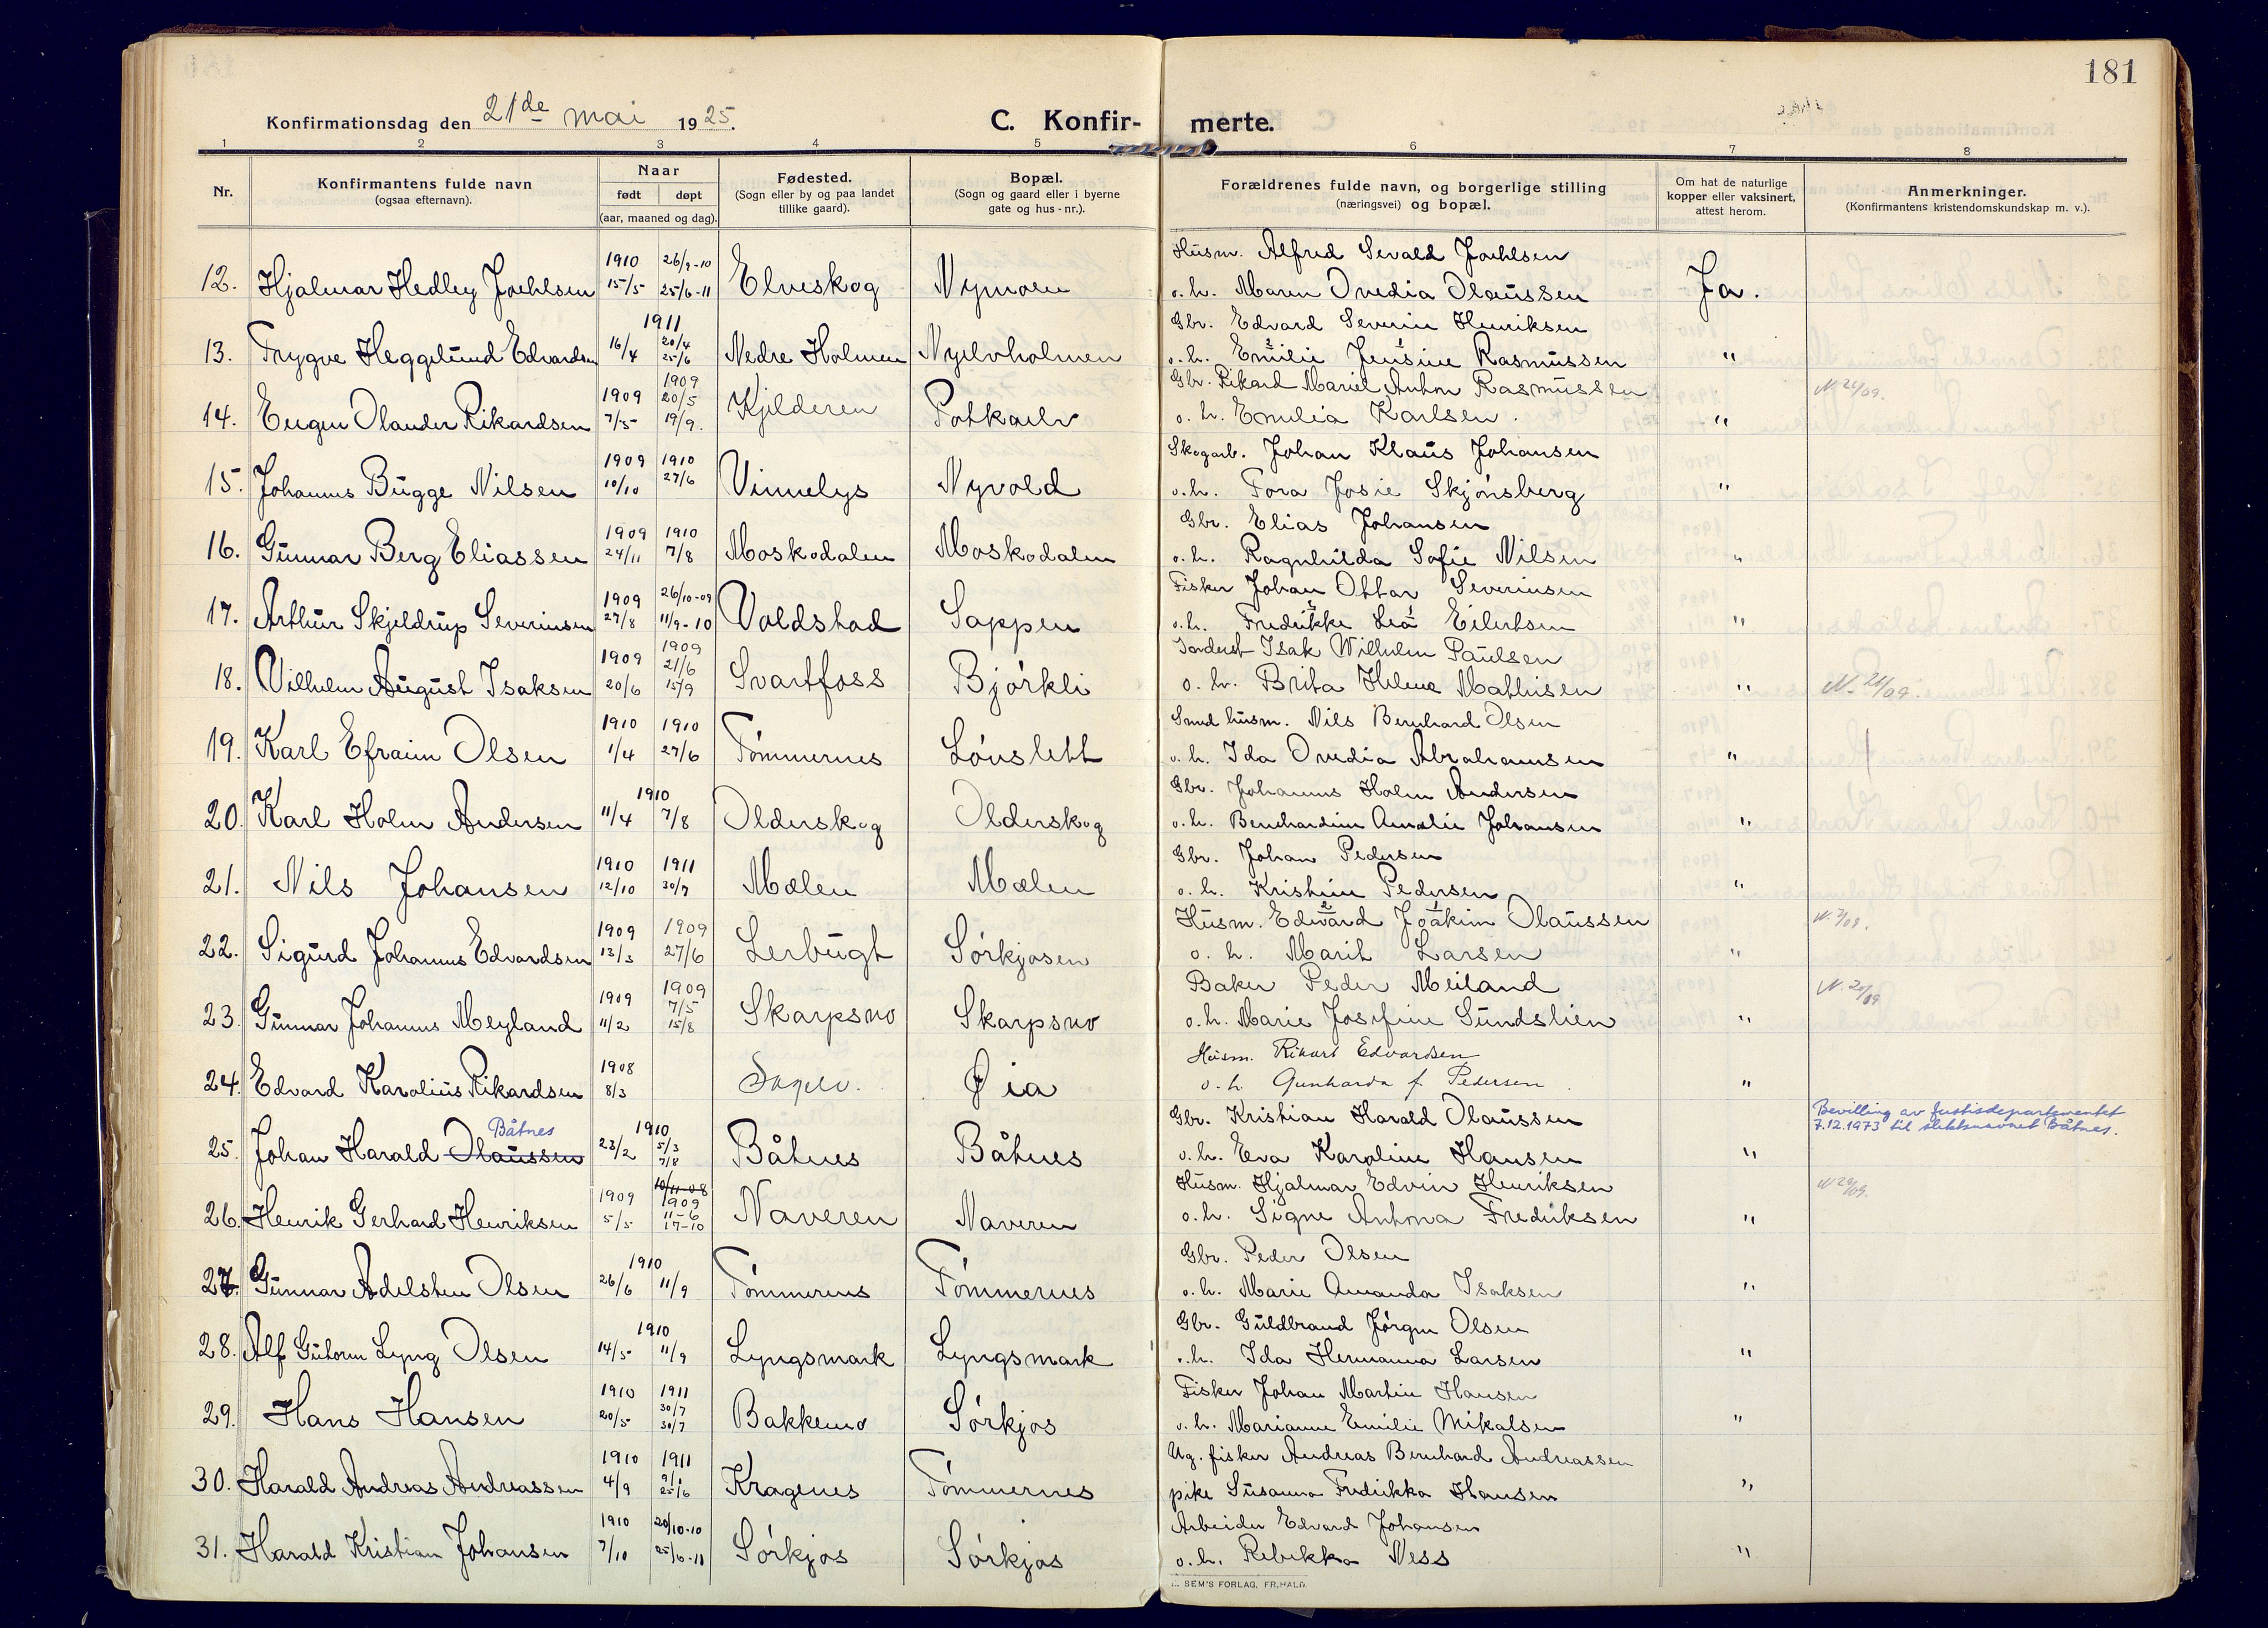 181
Konfirmationsdag den 21de mai 1925.
C. Konfir- merte.
1 2 3 4 5 6 7 8
Nr.
Konfirmantens fulde navn
(ogsaa efternavn).
Naar
født døpt
(aar, maaned og dag).
Fødested.
(Sogn eller by og paa landet
tillike gaard).
Bopæl.
(Sogn og gaard eller i byerne
gate og hus-nr.).
Forældrenes fulde navn, og borgerlige stilling
(næringsvei) og bopæl.
Om hat de naturlige
kopper eller vaksinert,
attest herom.
Anmerkninger.
(Konfirmantens kristendomskundskap m. v.).
Husm. Alfred Sevald Joehlsen
12. Hjalmar Hedley Joehlsen 1910 15/5 26/9-10 25/6-11 Elveskog Nymoen o. h. Maren Ovedia Olaussen Ja.
Gbr. Edvard Severin Henriksen
13. Trygve Heggelund Edvardsen 1911 16/4 20/4 25/6 Nedre Holmen Nyelvholmen o. h. Emilie Jensine Rasmussen "
Gbr. Rikard Mariel Anton Rasmussen
14. Eugen Olander Rikardsen 1909 7/5 1909 20/5 19/9. Kjelderen Potkaelv o. h. Emelia Karlsen. "
Skogarb. Johan Klaus Johansen
15. Johannes Bugge Nilsen 1909 10/10 1910 27/6 Vinnelys Nyvold o. h. Tora Josie Skjönsberg "
Gbr. Elias Johansen
16. Gunnar Berg Eliassen 1909 24/11 1910 7/8 Moskodalen Moskodalen o. h. Ragnhilda Sofie Nilsen "
Fisker Johan Ottar Severinsen
17. Arthur Skjeldrup Severinsen 1909 27/8 26/10-09 11/9-10 Voldstad Sappen o. h. Fredrikke Lea Eilertsen "
Isak Wilhelm Paulsen
18. Vilhelm August Isaksen 1909 20/6 1909 21/6 15/9 Svartfoss Björkli o. h. Brita Helene Mathisen " N. 21/09.
Smed husm. Nils Bernhard Olsen
19. Karl Efraim Olsen 1910 1/4 1910 27/6 Tömmernes Lönslett o. h. Ida Ovedia Abrahamsen "
Gbr. Johannes Holm Andersen
20. Karl Holm Andersen 1910 11/4 7/8 Olderskog Olderskog o. h. Bernhardine Amalie Johansen "
Gbr. Johan Pedersen
21. Nils Johansen 1910 12/10 1911 30/7 Mælen Mælen o. h. Kristine Pedersen "
Husm. Edvard Joakim Olaussen
22. Sigurd Johannes Edvardsen 1909 13/3 1909 27/6 Lerbugt Sörkjosen o. h. Marit Larsen "
Baker Peder Meiland
23. Gunnar Johannes Meyland 1909 11/2 1909 7/5 15/8 Skarpsno Skarpsno o. h. Marie Josefine Sundslien "
Husm. Rikart Edvardsen
24. Edvard Karolius Rikardsen 1908 8/3 Øia o. h. Gunharda f. Pedersen "
Gbr. Kristian Harald Olaussen Bevilling av Justisdepartementet
7.12.1973 til slektsnavnet Båtnes.
Båtnes
25. Johan Harald Olaussen 1910 23/2 5/3 7/8 Båtnes Båtnes o. h. Eva Karoline Hansen "
Husm. Hjalmar Edvin Henriksen
26. Henrik Gerhard Henriksen 1909 5/5 10/11-08 1909 11-6 17-10 Naveren Naveren o. h. Signe Antona Fredriksen "
Gbr. Peder Olsen
27. Gunnar Adelsten Olsen 1910 26/6 11/9 Tömmernes Tömmernes o. h. Marie Amanda Isaksen "
Gbr. Guldbrand Jörgen Olsen
28. Alf Gutorm Lyng Olsen 1910 14/5 11/9 Lyngsmark Lyngsmark o. h. Ida Hermanna Larsen "
Fisker Johan Martin Hansen
29. Hans Hansen 1910 20/5 1911 30/7 30/7 Bakkemo Sörkjos o. h. Marianne Emilie Mikalsen "
Ug. fisker Andreas Bernhard Andreassen
30. Harald Andreas Andreassen 1910 4/9 1911 25/6 Kragenes Tömmernes pike Susanna Fredrikka Hansen "
Arbeider Edvard Johansen
31. Harald Kristian Johansen 1910 7/10 20/10-10 25/6-11 Sörkjos Sörkjos o. h. Rebekka Ness "
SEM'S FORLAG, FR.HALD